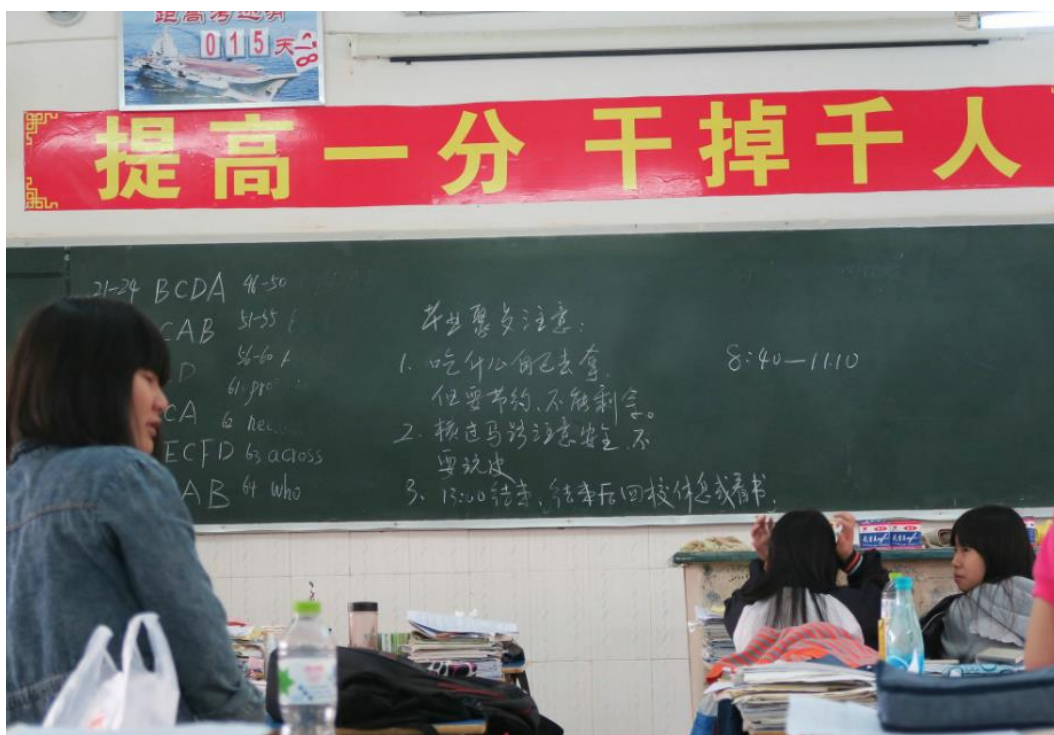 距高考还有
015天
提高一分 干掉千人
21-24 BCDA 46-50
CAB 51-55
D 56-60
61.pro
CA 62 ne
ECFD 63 across
AB 64 who
毕业聚多注意:
1. 吃什么自己去拿,
但要节约、不能剩余。
2. 横过马路注意安全,不
要玩皮
3、13:00结束,结束后回校休息或看书,
8:40—11:10